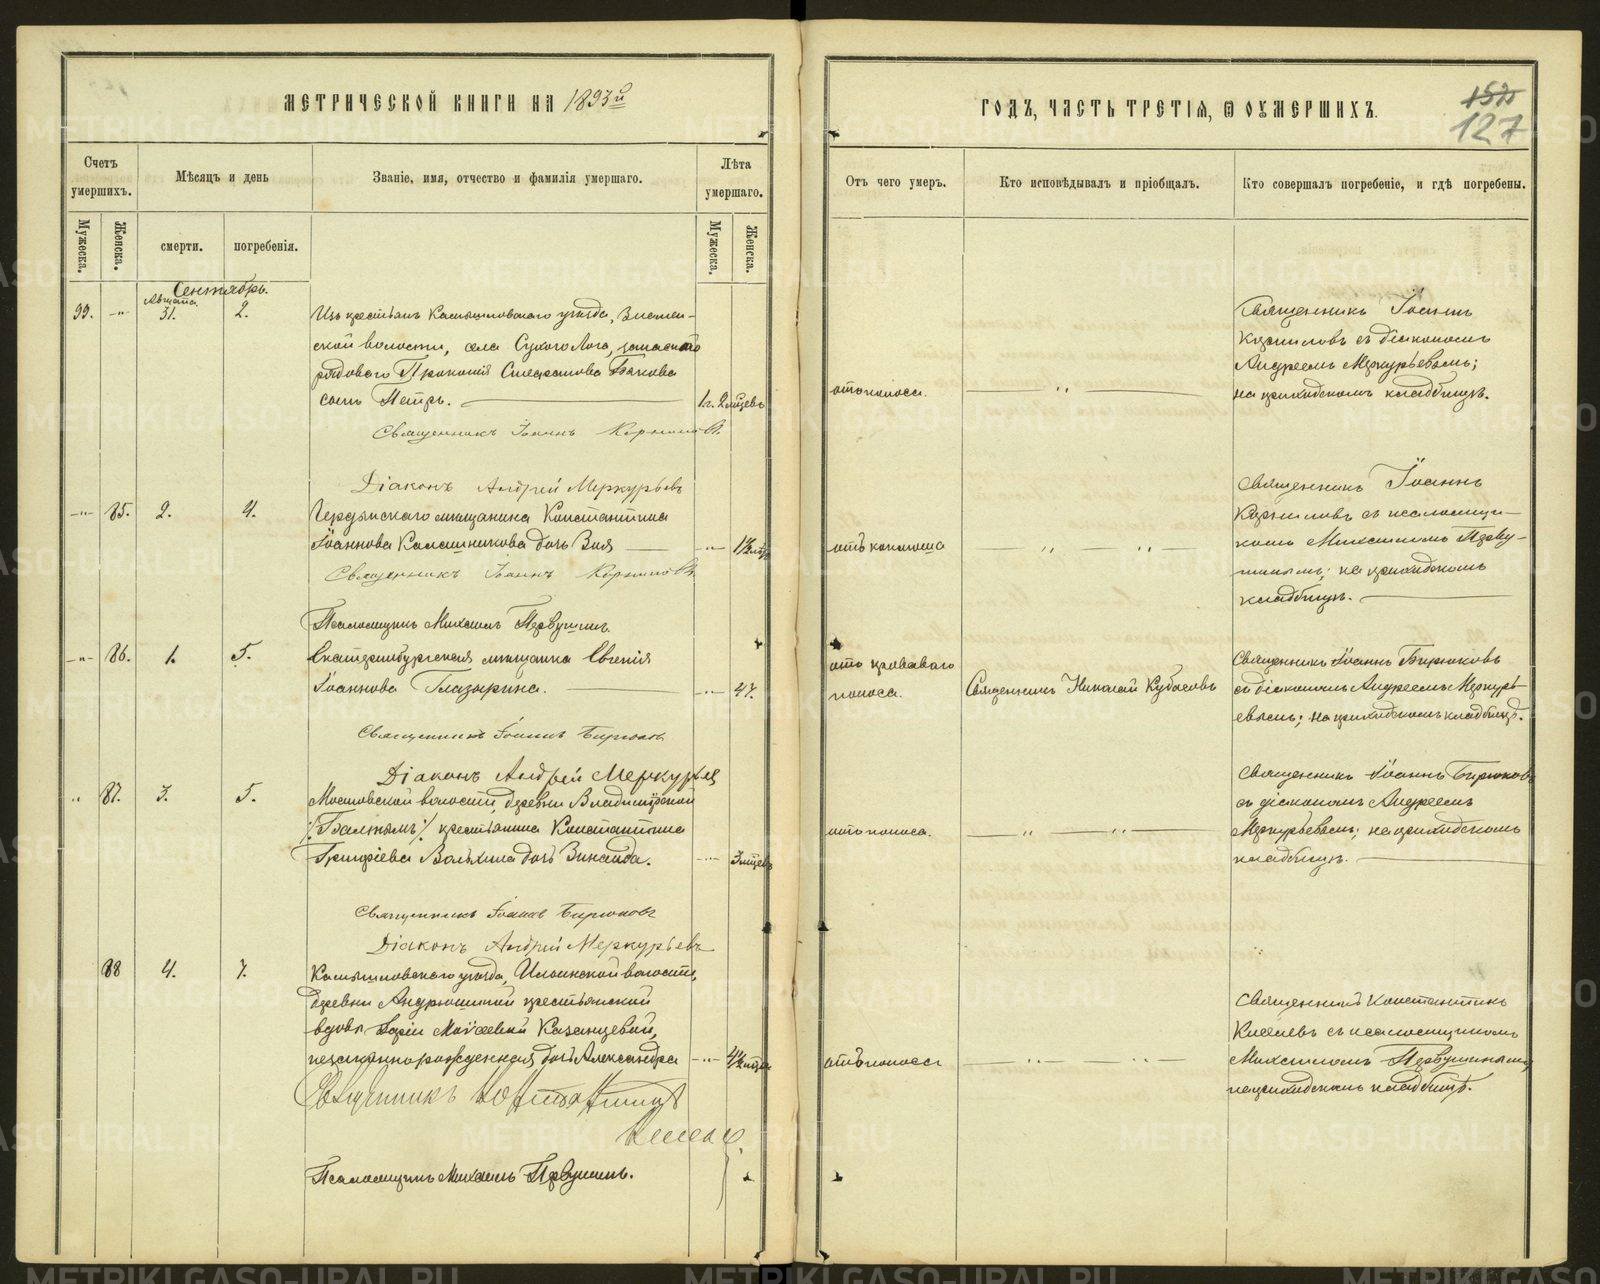 МЕТРИЧЕСКОЙ КНИГИ НА 1893й
ГОДЪ, ЧАСТЬ ТРЕТІЯ, Ѿ ОУМЕРШИХЪ.
127
Счетъ умершихъ.
Мѣсяцъ и день
Званіе, имя, отчество и фамилія умершаго.
Лѣта умершаго.
Отъ чего умеръ.
Кто исповѣдывалъ и пріобщалъ.
Кто совершалъ погребеніе, и гдѣ погребены.
Мужеска.
Женска.
смерти.
погребенія.
Мужеска.
Женска.
Сентябрь.
Августа
99. -"- 31. 2.
Изъ крестьянъ Камышловскаго уѣзда, Знамен-
ской волости, села Сухого Лога, запаснаго
рядового Прокопія Стефанова Бачкова
сынъ Петръ. 1 г. 2 мѣсев
отъ поноса.
Священникъ Іоаннъ
Корниловъ съ діакономъ
Андреемъ Меркурьевымъ;
на приходскомъ кладбищѣ.
Священникъ Іоаннъ Корниловъ.
Діаконъ Андрей Меркурьевъ
-"- 85. 2. 4.
Чердынскаго мѣщанина Константина
Іоаннова Калашникова дочь Зоя -"- 1½ мѣс
отъ коклюша
Священникъ Іоаннъ
Корниловъ съ псаломщи-
комъ Михаиломъ Перву-
шинымъ; на приходскомъ
кладбищѣ.
Священникъ Іоаннъ Корниловъ.
Псаломщикъ Михаилъ Первушинъ.
-"- 86. 1. 5.
Екатеринбургская мѣщанка Евгенія
Іоаннова Глазырина. -"- 47.
отъ кроваваго
поноса.
Священникъ Николай Кубасовъ
Священникъ Іоаннъ Бирюковъ
съ діакономъ Андреемъ Меркурь-
евымъ; на приходскомъ кладбищѣ.
Священникъ Іоаннъ Бирюковъ
Діаконъ Андрей Меркурьев
" 87. 3. 5.
Мостовской волости, деревни Владимірской
/Балтымъ/ крестьянина Константина
Григоріева Вольхина дочь Зинаида. -"- 3 мѣсев
отъ поноса.
Священникъ Іоаннъ Бирюковъ
съ діакономъ Андреемъ
Меркурьевымъ; на приходскомъ
кладбищѣ.
Священникъ Іоаннъ Бирюковъ
Діаконъ Андрей Меркурьевъ
88 4. 7.
Камышловскаго уѣзда, Ильинской волости,
деревни Андрюшиной крестьянской
вдовы Дарьи Моѵсеевой Казанцевой,
незаконнорожденная дочь Александра -"- 4½ мѣся
отъ поноса
Священникъ Константинъ
Киселевъ съ псаломщикомъ
Михаиломъ Первушинымъ
на приходскомъ кладбищѣ.
Священникъ Константинъ
Киселевъ.
Псаломщикъ Михаилъ Первушинъ.